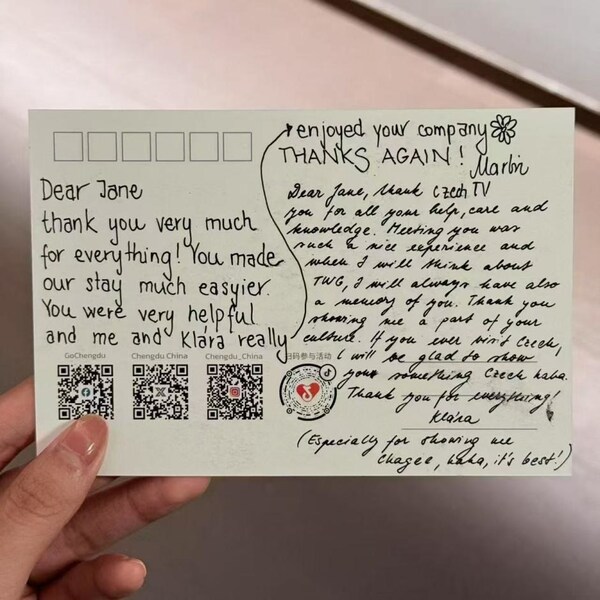 Dear Jane
thank you very much
for everything! You made
our stay much easyier.
You were very helpful
and me and Klára really
enjoyed your company
THANKS AGAIN!
Martin
Czech TV
Dear Jane, thank
you for all your help, care and
knowledge. Meeting you was
such a nice experience and
when I will think about
TWG, I will always have also
a memory of you. Thank you
showing me a part of your
culture. If you ever visit Czech,
I will be glad to show
you something Czech haha.
Thank you for everything!
Klára
(Especially for showing me
Chagee, haha, it's best!)
GoChengdu
Chengdu.China
Chengdu_China
扫码参与活动